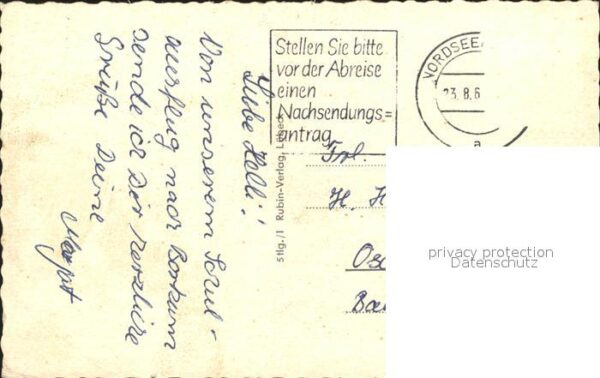 Stellen Sie bitte
vor der Abreise
einen
Nachsendungs=
antrag
NORDSEE
23.8.6
a
Liebe Helli!
Von unserem Schul-
ausflug nach Borkum
sende ich Dir herzliche
Grüße Deine
Margit
Frl.
H. H
Os
Stlg./1 Rubin-Verlag, Lübeck
privacy protection
Datenschutz